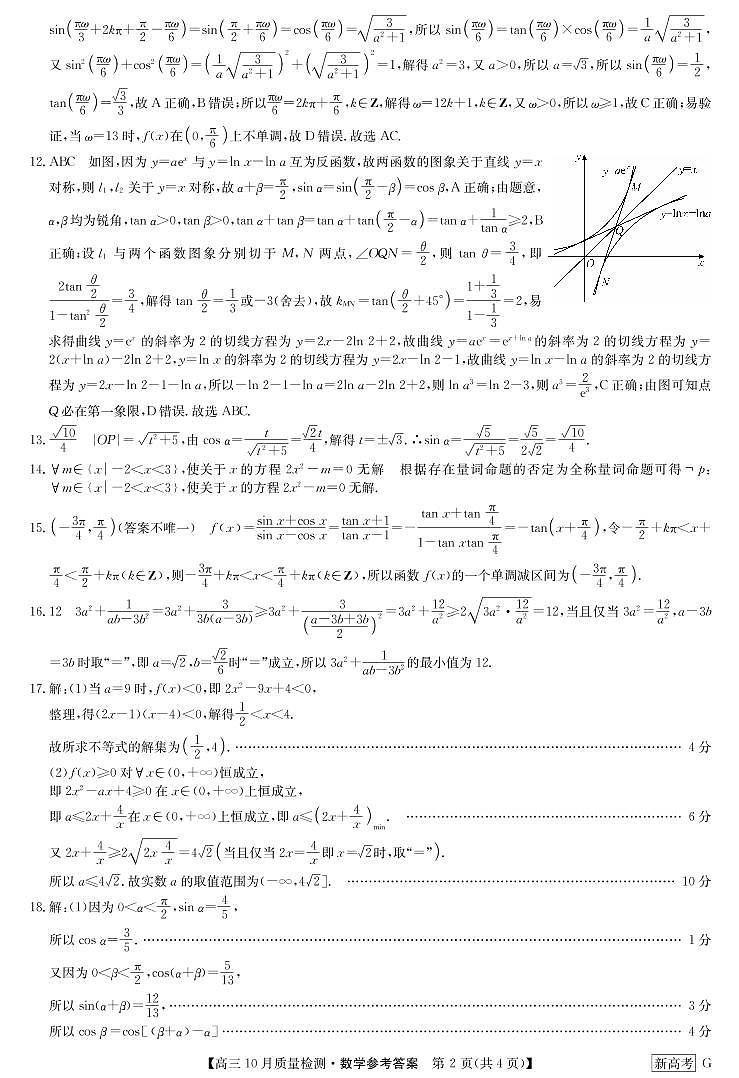 sin(πω/3+2kπ+π/2-πω/6)=sin(π/2+πω/6)=cos(πω/6)=√(3/(a²+1)),所以 sin(πω/6)=tan(πω/6)×cos(πω/6)=1/a √(3/(a²+1)),
又 sin²(πω/6)+cos²(πω/6)=(1/a √(3/(a²+1)))²+(√(3/(a²+1)))²=1,解得 a²=3,又 a>0,所以 a=√3,所以 sin(πω/6)=1/2,
tan(πω/6)=√3/3,故 A 正确,B 错误;所以πω/6=2kπ+π/6,k∈Z,解得 ω=12k+1,k∈Z,又 ω>0,所以 ω≥1,故 C 正确;易验
证,当 ω=13 时,f(x)在(0,π/6)上不单调,故 D 错误.故选 AC.
12. ABC 如图,因为 y=aeˣ 与 y=ln x-ln a 互为反函数,故两函数的图象关于直线 y=x
对称,则 l₁,l₂ 关于 y=x 对称,故 α+β=π/2,sin α=sin(π/2-β)=cos β,A 正确;由题意,
α,β均为锐角,tan α>0,tan β>0,tan α+tan β=tan α+tan(π/2-α)=tan α+1/tan α≥2,B
正确;设 l₁ 与两个函数图象分别切于 M,N 两点,∠OQN=θ/2,则 tan θ=3/4,即
2tan θ/2/(1-tan² θ/2)=3/4,解得 tan θ/2=1/3或-3(舍去),故 k_MN=tan(θ/2+45°)=(1+1/3)/(1-1/3)=2,易
求得曲线 y=eˣ 的斜率为 2 的切线方程为 y=2x-2ln 2+2,故曲线 y=aeˣ=e^(x+ln a)的斜率为 2 的切线方程为 y=
2(x+ln a)-2ln 2+2,y=ln x 的斜率为 2 的切线方程为 y=2x-ln 2-1,故曲线 y=ln x-ln a 的斜率为 2 的切线方
程为 y=2x-ln 2-1-ln a,所以-ln 2-1-ln a=2ln a-2ln 2+2,则 ln a³=ln 2-3,则 a³=2/e³,C 正确;由图可知点
Q 必在第一象限,D 错误.故选 ABC.
y
y=aeˣ
y=x
M
y=lnx-lna
Q
O
x
N
13. √10/4 |OP|=√(t²+5),由 cos α=t/√(t²+5)=√2t/4,解得 t=±√3.∴sin α=√5/√(t²+5)=√5/2√2=√10/4.
14. ∀m∈{x|-2<x<3},使关于 x 的方程 2x²-m=0 无解 根据存在量词命题的否定为全称量词命题可得¬p:
∀m∈{x|-2<x<3},使关于 x 的方程 2x²-m=0 无解.
15. (-3π/4,π/4)(答案不唯一) f(x)=(sin x+cos x)/(sin x-cos x)=(tan x+1)/(tan x-1)=-(tan x+tan π/4)/(1-tan xtan π/4)=-tan(x+π/4),令-π/2+kπ<x+
π/4<π/2+kπ(k∈Z),则-3π/4+kπ<x<π/4+kπ(k∈Z),所以函数 f(x)的一个单调减区间为(-3π/4,π/4).
16. 12 3a²+1/(ab-3b²)=3a²+3/(3b(a-3b))≥3a²+3/((a-3b+3b)/2)²=3a²+12/a²≥2√(3a²·12/a²)=12,当且仅当 3a²=12/a²,a-3b
=3b 时取“=”,即 a=√2,b=√2/6时“=”成立,所以 3a²+1/(ab-3b²)的最小值为 12.
17. 解:(1)当 a=9 时,f(x)<0,即 2x²-9x+4<0,
整理,得(2x-1)(x-4)<0,解得1/2<x<4.
故所求不等式的解集为(1/2,4). …… 4 分
(2)f(x)≥0 对∀x∈(0,+∞)恒成立,
即 2x²-ax+4≥0 在 x∈(0,+∞)上恒成立,
即 a≤2x+4/x在 x∈(0,+∞)上恒成立,即 a≤(2x+4/x)min. …… 6 分
又 2x+4/x≥2√(2x·4/x)=4√2(当且仅当 2x=4/x即 x=√2时,取“=”).
所以 a≤4√2.故实数 a 的取值范围为(-∞,4√2]. …… 10 分
18. 解:(1)因为 0<α<π/2,sin α=4/5,
所以 cos α=3/5. …… 1 分
又因为 0<β<π/2,cos(α+β)=5/13,
所以 sin(α+β)=12/13, …… 3 分
所以 cos β=cos[(β+α)-α] …… 4 分
【高三 10 月质量检测·数学参考答案 第 2 页(共 4 页)】 新高考 G